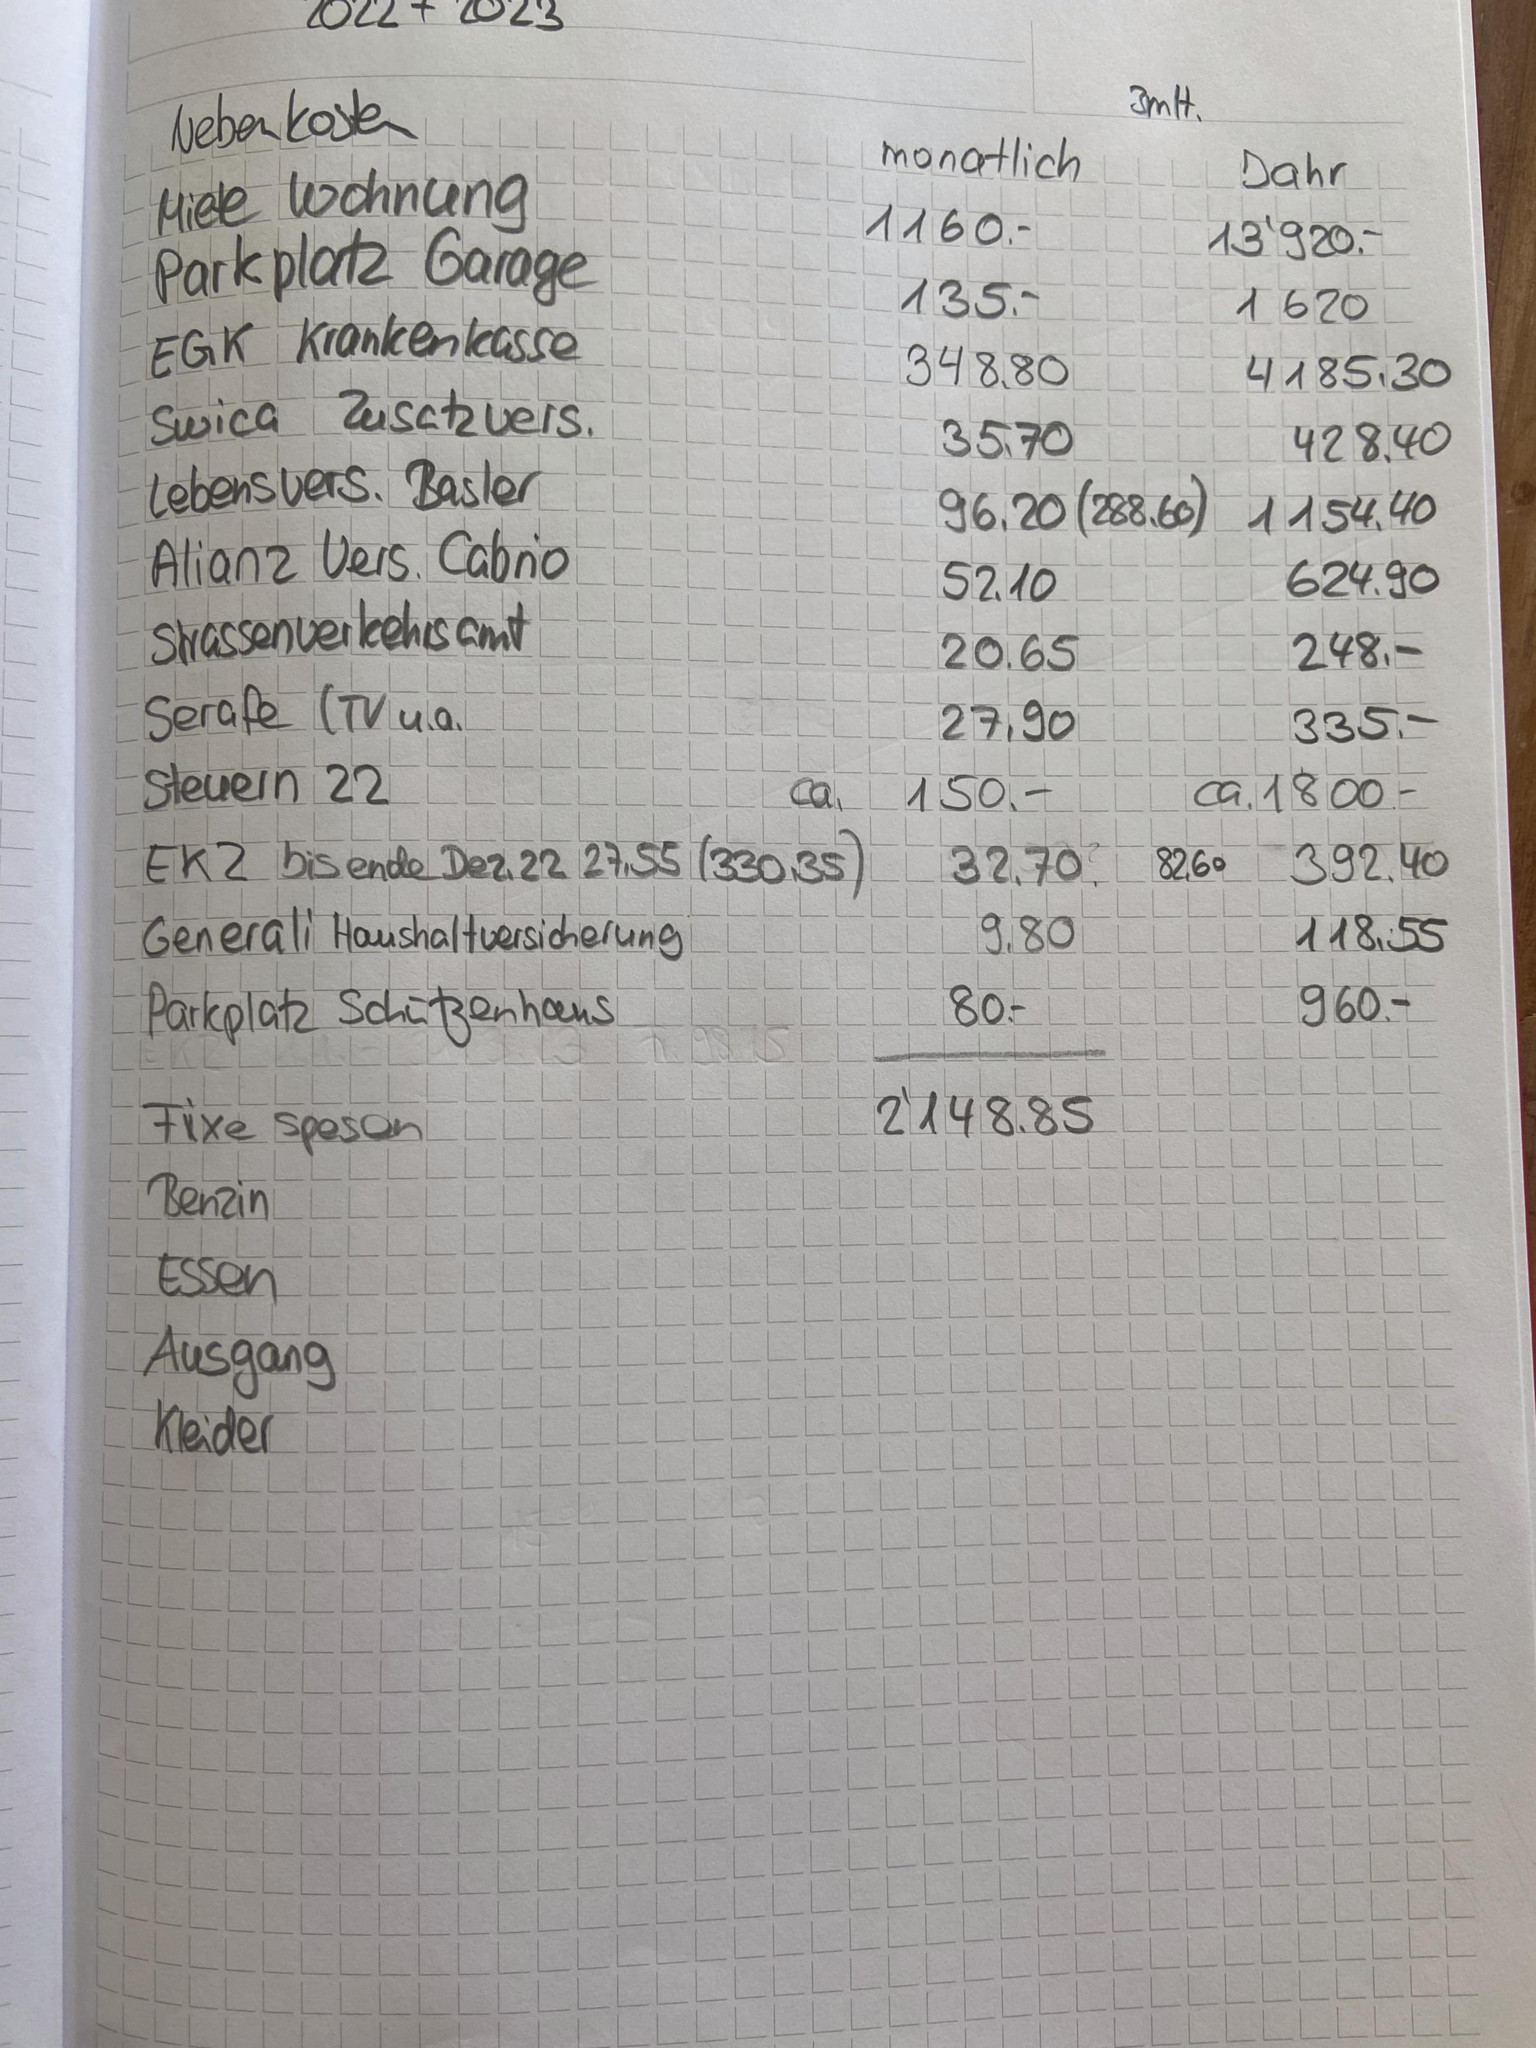 2022 + 2023
3mt.
Nebenkosten monatlich Jahr
Miete Wohnung 1160.- 13'920.-
Parkplatz Garage 135.- 1620
EGK Krankenkasse 348.80 4185.30
Swica Zusatzvers. 35.70 428.40
Lebensvers. Basler 96.20 (288.60) 1154.40
Alianz Vers. Cabrio 52.10 624.90
Strassenverkehrsamt 20.65 248.-
Serafe (TV u.a. 27.90 335.-
Steuern 22 ca. 150.- ca. 1800.-
EKZ bis ende Dez. 22 27.55 (330.35) 32.70? 82.60 392.40
Generali Haushaltversicherung 9.80 118.55
Parkplatz Schützenhaus 80.- 960.-
Fixe spesen 2'148.85
Benzin
Essen
Ausgang
Kleider